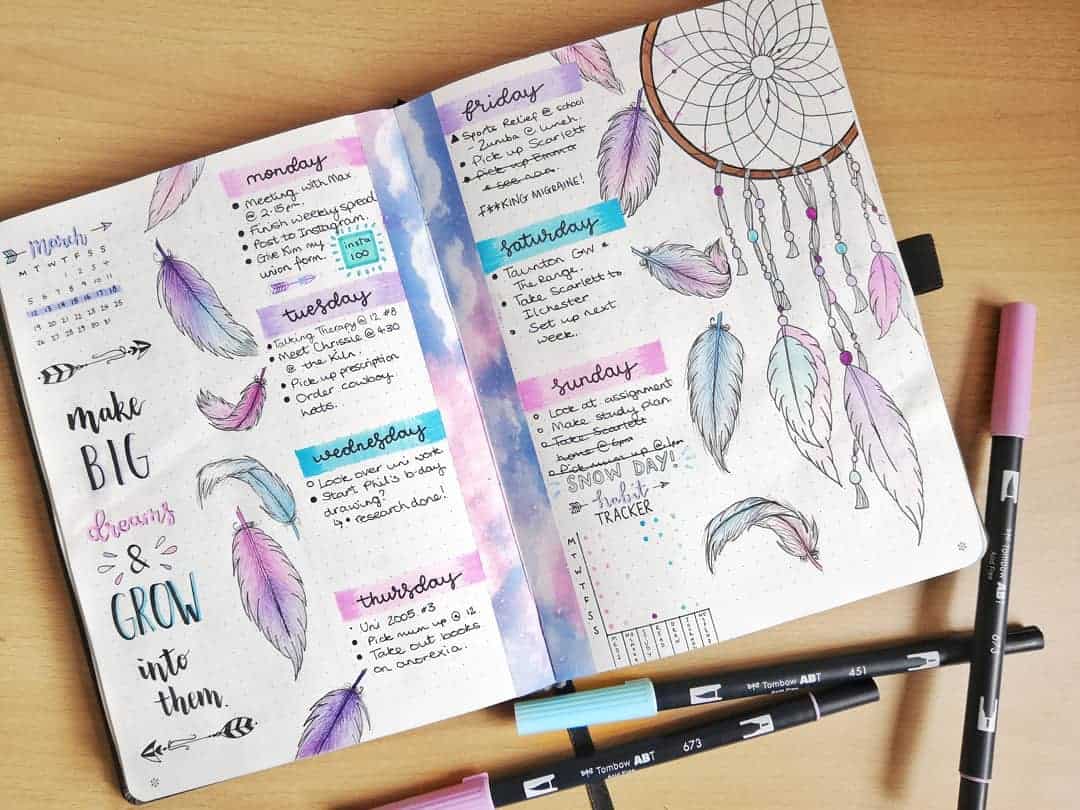 March
M T W T F S S
1 2 3 4
5 6 7 8 9 10 11
12 13 14 15 16 17 18
19 20 21 22 23 24 25
26 27 28 29 30 31
make
BIG
dreams
&
GROW
into
them.
monday
Meeting with Max
@ 2:15pm.
Finish weekly spread
Post to Instagram.
Give Kim my
union form.
insta
100
tuesday
Talking Therapy @ 12 #8
Meet Chrissie @ 4:30
@ the Kiln.
Pick up prescription
Order cowboy
hats.
wednesday
Look over uni work
Start Phil's b-day
drawing?
↳ research done!
thursday
Uni 2005 #3
Pick mum up @ 12
Take out books
on anorexia.
friday
Sports Relief @ school
- Zumba @ lunch.
Pick up Scarlett
Pick up Emma
F**KING MIGRAINE!
saturday
Taunton GW &
The Range.
Take Scarlett to
Ilchester
Set up next
week.
sunday
Look at assignment
Make study plan.
Take Scarlett
home @ 6pm
Pick mum up @ 1pm
SNOW DAY!
habit
TRACKER
M
T
W
T
F
S
S
Tombow ABT
451
Tombow ABT
673
Tombow ABT
673